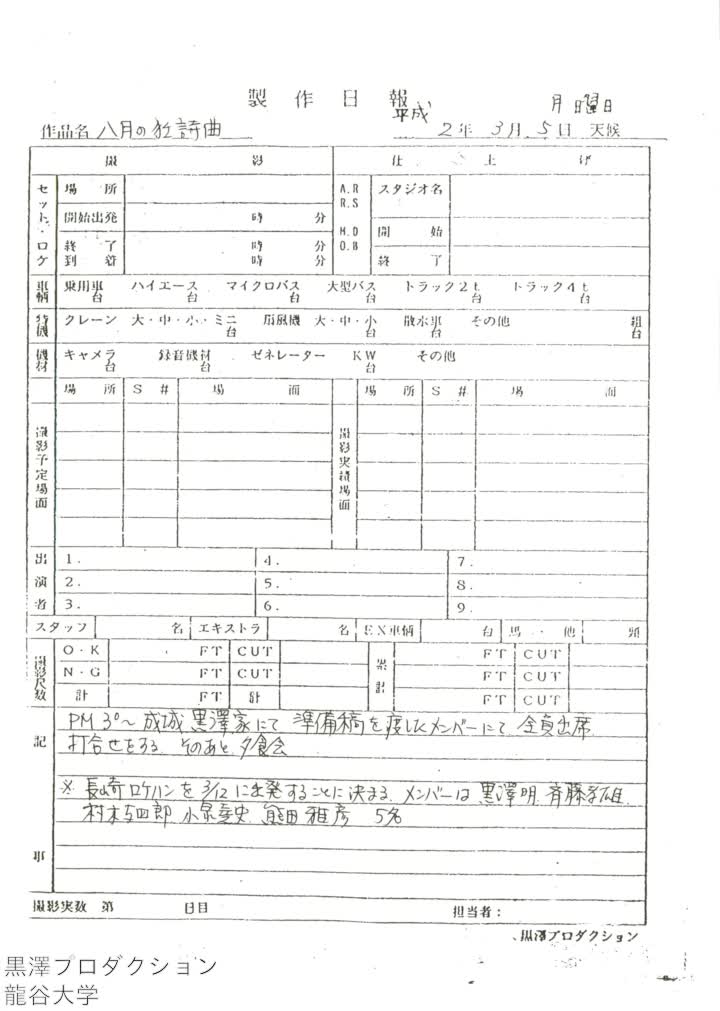 製作日報
平成
月 曜日
作品名 八月の狂詩曲
2年 3月 5日 天候
撮 影 仕 上 げ
セット・ロケ 場 所 A.R R.S スタジオ名
開始出発 時 分 M.D D.B 開 始
終 了 時 分
到 着 時 分 終 了
車輌 乗用車 台 ハイエース 台 マイクロバス 台 大型バス 台 トラック2t 台 トラック4t 台
特機 クレーン 大・中・小・ミニ 台 扇風機 大・中・小 台 散水車 台 その他 組 台
機材 キャメラ 台 録音機材 台 ゼネレーター KW 台 その他
場 所 S # 場 面 場 所 S # 場 面
撮影予定場面 撮影実績場面
出演者
1. 4. 7.
2. 5. 8.
3. 6. 9.
スタッフ 名 エキストラ 名 EX車輌 台 馬・他 頭
撮影尺数 O・K FT CUT 累計 FT CUT
N・G FT CUT FT CUT
計 FT 計 FT CUT
記事
PM 3°~ 成城 黒澤家にて 準備稿を渡したメンバーにて 全員出席
打合せをする そのあと 夕食会
※ 長崎ロケハンを 3/12 に出発することに決まる メンバーは 黒澤明 斉藤孝雄
村木与四郎 小泉堯史 熊田雅彦 5名
撮影実数 第 日目 担当者:
黒澤プロダクション
黒澤プロダクション
龍谷大学